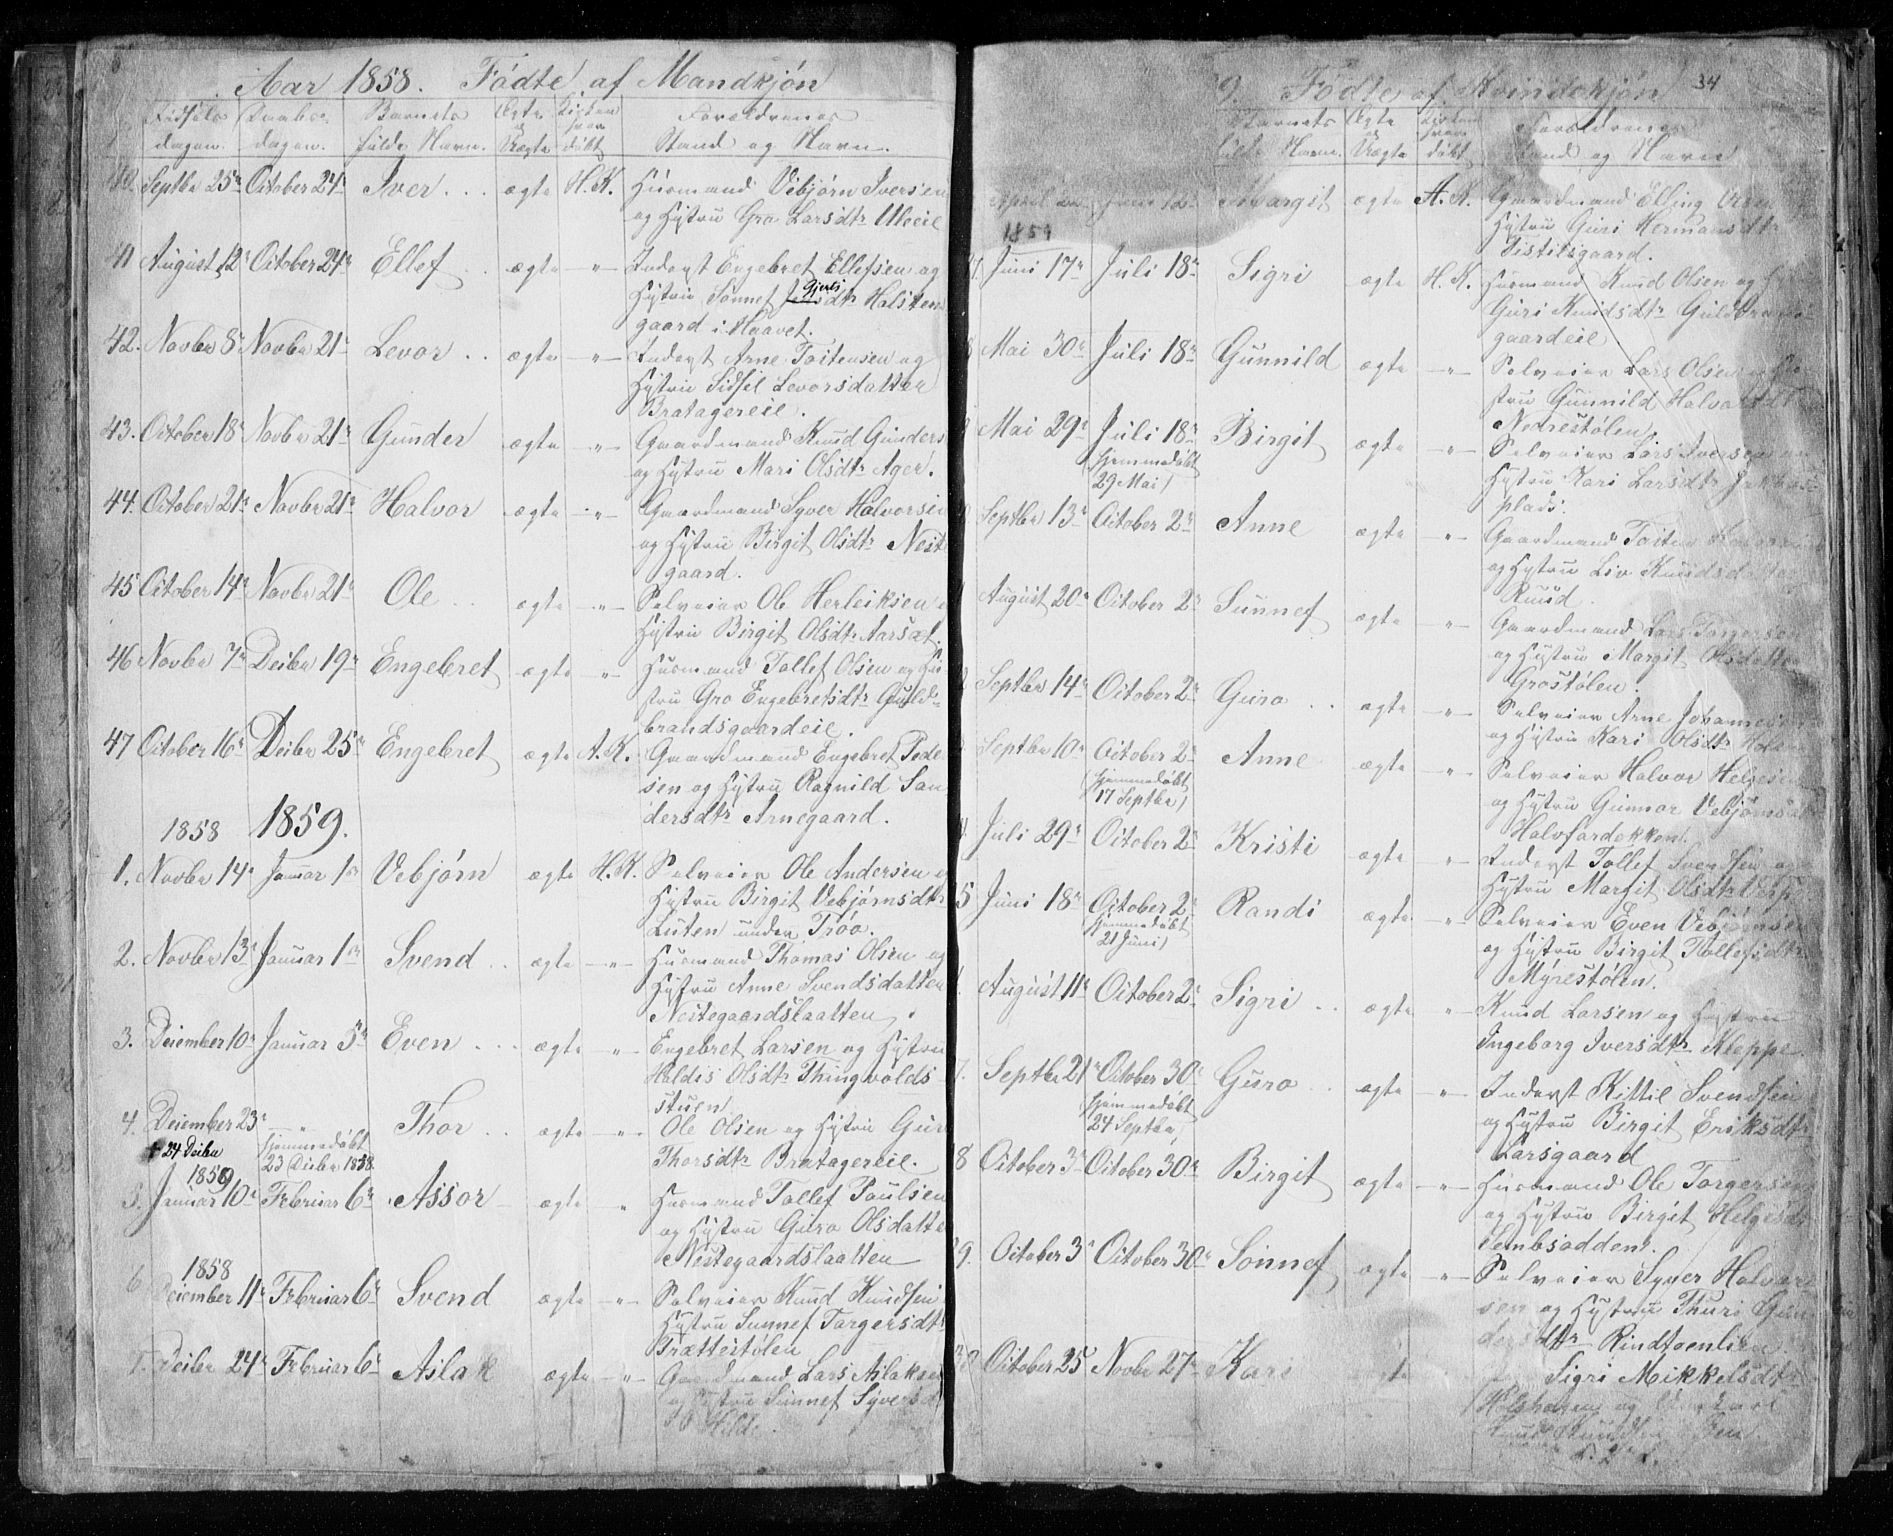 Aar 1858. Fødte af Mandkjøn
Fødsels Daabs- Barnets Ægte Kirken Foreldrenes
dagen. dagen. fulde Navn. og Uægte hvor døbt Stand og Navn.
40. Septbr 25de October 24de Iver . . . ægte H.K. Husmand Vebjørn Iversen
og Hustru Gro Larsdtr Uleeie
41 August 12te October 24de Ellef . . ægte —"— Inderst Engebret Ellefsen og
Hustru Sønnef Gjulsdtr Halsten-
gaard i Haavet.
42. Novbr 8de Novbr 21de Levor . . ægte —"— Inderst Arne Tostensen og
Hustru Sidsel Levorsdatter
Bratagereie.
43. October 18de Novbr 21de Gunder ægte —"— Gaardmand Knud Gunders
og Hustru Mari Olsdtr Ager.
44. October 21de Novbr 21de Halvor ægte —"— Gaardmand Syver Halvorsen
og Hustru Birgit Olsdtr Neste
gaard.
45 October 14de Novbr 21de Ole . . ægte —"— Selveier Ole Herleiksen
Hustru Birgit Olsdtr Aarsæt.
46 Novbr 7de Decbr 19de Engebret ægte —"— Husmand Tollef Olsen og Hu
stru Gro Engebretsdtr Guld-
brandsgaardeie.
47 October 16de Decbr 25de Engebret ægte A.K. Gaardmand Engebret Peder
sen og Hustru Ragnild San
dersdtr Arnegaard.
1858 1859.
1. Novbr 14de Januar 1ste Vebjørn ægte H.K. Selveier Ole Andersen
Hustru Birgit Vebjørnsdtr
Luten under Trøo.
2. Novbr 13de Januar 1ste Svend . . ægte —"— Husmand Thomas Olsen og
Hustru Anne Svendsdatter
Nestegaardslaatten.
3. December 10de Januar 5te Even . . . ægte —"— Engebret Larsen og Hustru
Haldis Olsdtr Thingvolds-
stuen
4. December 23de —"— Thor . . ægte —"— Ole Olsen og Hustru Guri
† 24 Decbr (hjemmedøbt
23 Decbr 1858. Thorsdtr Bratagereie.
1859
5. Januar 10de Februar 6te Assor ægte " Husmand Tollef Poulsen
og Hustru Guro Olsdatter
Nestegaardslaatten
1858
6 December 11te Februar 6te Svend ægte —"— Selveier Knud Knudsen
Hustru Sunnef Torgersdtr
Trættestølen
7. Decbr 24de Februar 6te Aslak ægte —"— Gaardmand Lars Aslaksen
og Hustru Sunnef Syversd
Hilde.
34
9. Fødte af Kvindekjøn
Barnets Ægte Kirken Foreldrenes
fulde Navn. og Uægte hvor døbt Stand og Navn
April Juni 12te Margit ægte A.K. Gaardmand Elling
Hustru Guri Hermansdtr
Tistilsgaard.
1859
Juni 17de Juli 18de Sigri ægte H.K. Husmand Knud Olsen og
Guri Knudsdtr Guldbrands-
gaardeie
Mai 30te Juli 18de Gunnild ægte —"— Selveier Lars Olsen
stru Gunnild Halvorsdtr
Nedrestølen.
Mai 29de Juli 18de Birgit ægte —"— Selveier Lars Iversen
(hjemmedøbt
29 Mai) Hustru Kari Larsdtr
plads.
Septbr 13de October 2de Anne ægte —"— Gaardmand Tosten
og Hustru Liv Knudsdatter
Ruud
August 20de October 2de Sunnef ægte " Gaardmand Lars Torgersen
og Hustru Margit Olsdatter
Grostølen.
Septbr 14de October 2de Guro . . ægte —"— Selveier Arne Johannes
og Hustru Kari Olsdtr
Septbr 10de October 2de Anne ægte —"— Selveier Halvor Helgesen
(hjemmedøbt
17 Septbr) og Hustru Gunnor Vebjørns
Halvfardokken.
Juli 29de October 2de Kristi ægte —"— Inderst Tollef Svendsen og
Hustru Margit Olsdtr
5 Juni 18de October 2de Randi ægte —"— Selveier Even Vebjørnsen
(hjemmedøbt
21 Juni) og Hustru Birgit Tollefsdtr
Myrestølen.
August 11te October 2de Sigri . . ægte " Knud Larsen og Hustru
Ingeborg Iversdtr Kleppe.
7. Septbr 21de October 30te Guro . . ægte " Inderst Kittil Svendsen
(hjemmedøbt
24 Septbr) og Hustru Birgit Eriksdtr
Larsgaard
8 October 3de October 30te Birgit ægte —"— Husmand Ole Torgersen
og Hustru Birgit Helgesdt
Sembsodden.
9. October 3de October 30te Sonnef ægte —"— Selveier Syver Halvor
sen og Hustru Thuri Gun
dersdtr Rindtoenlien
October 25 Novbr 27de Kari ægte Sigri Mikkelsdtr
og
Knud Knudsen